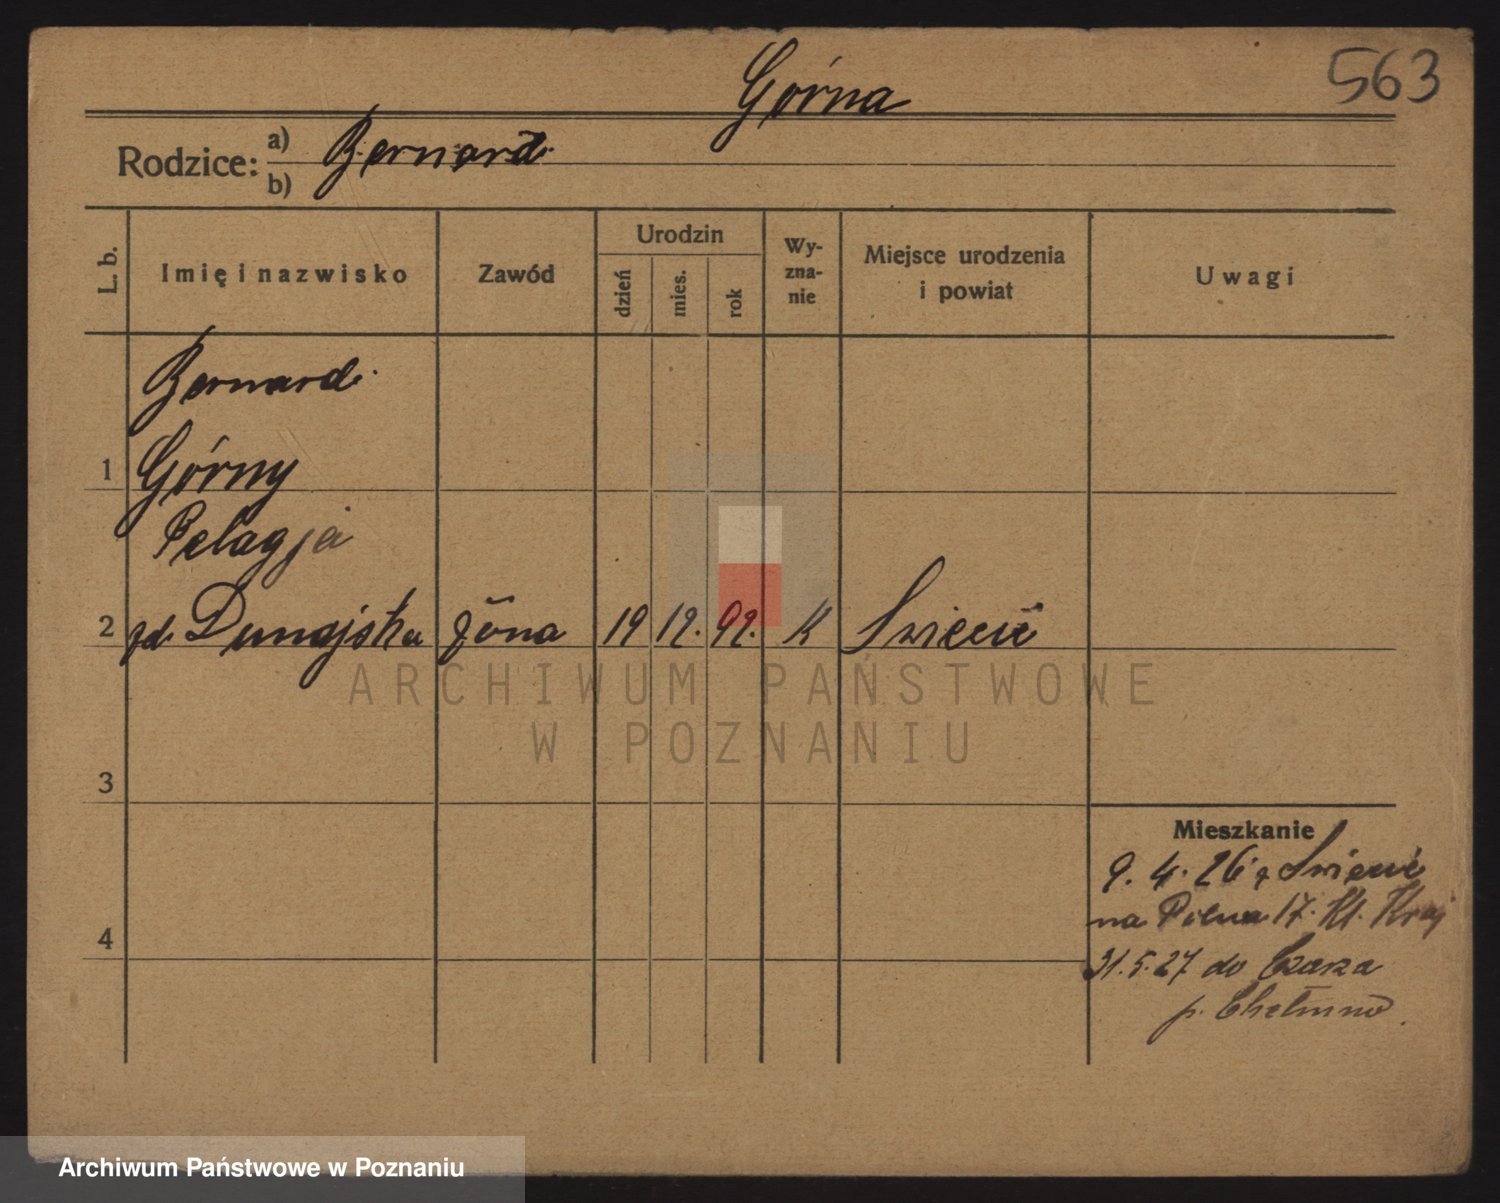 Górna
563
Rodzice: a) Bernard
b)
L. b.
Imię i nazwisko
Zawód
Urodzin
dzień
mies.
rok
Wy-
zna-
nie
Miejsce urodzenia
i powiat
Uwagi
Bernard
1 Górny
Pelagja
2 zd. Dunajska żona 19 12. 92. K Świecie
3
4
Mieszkanie
9. 4. 26 z Świecie
na Polna 17. Kl. Kraj
31. 5. 27 do
p. Chełmno
ARCHIWUM PAŃSTWOWE
W POZNANIU
Archiwum Państwowe w Poznaniu